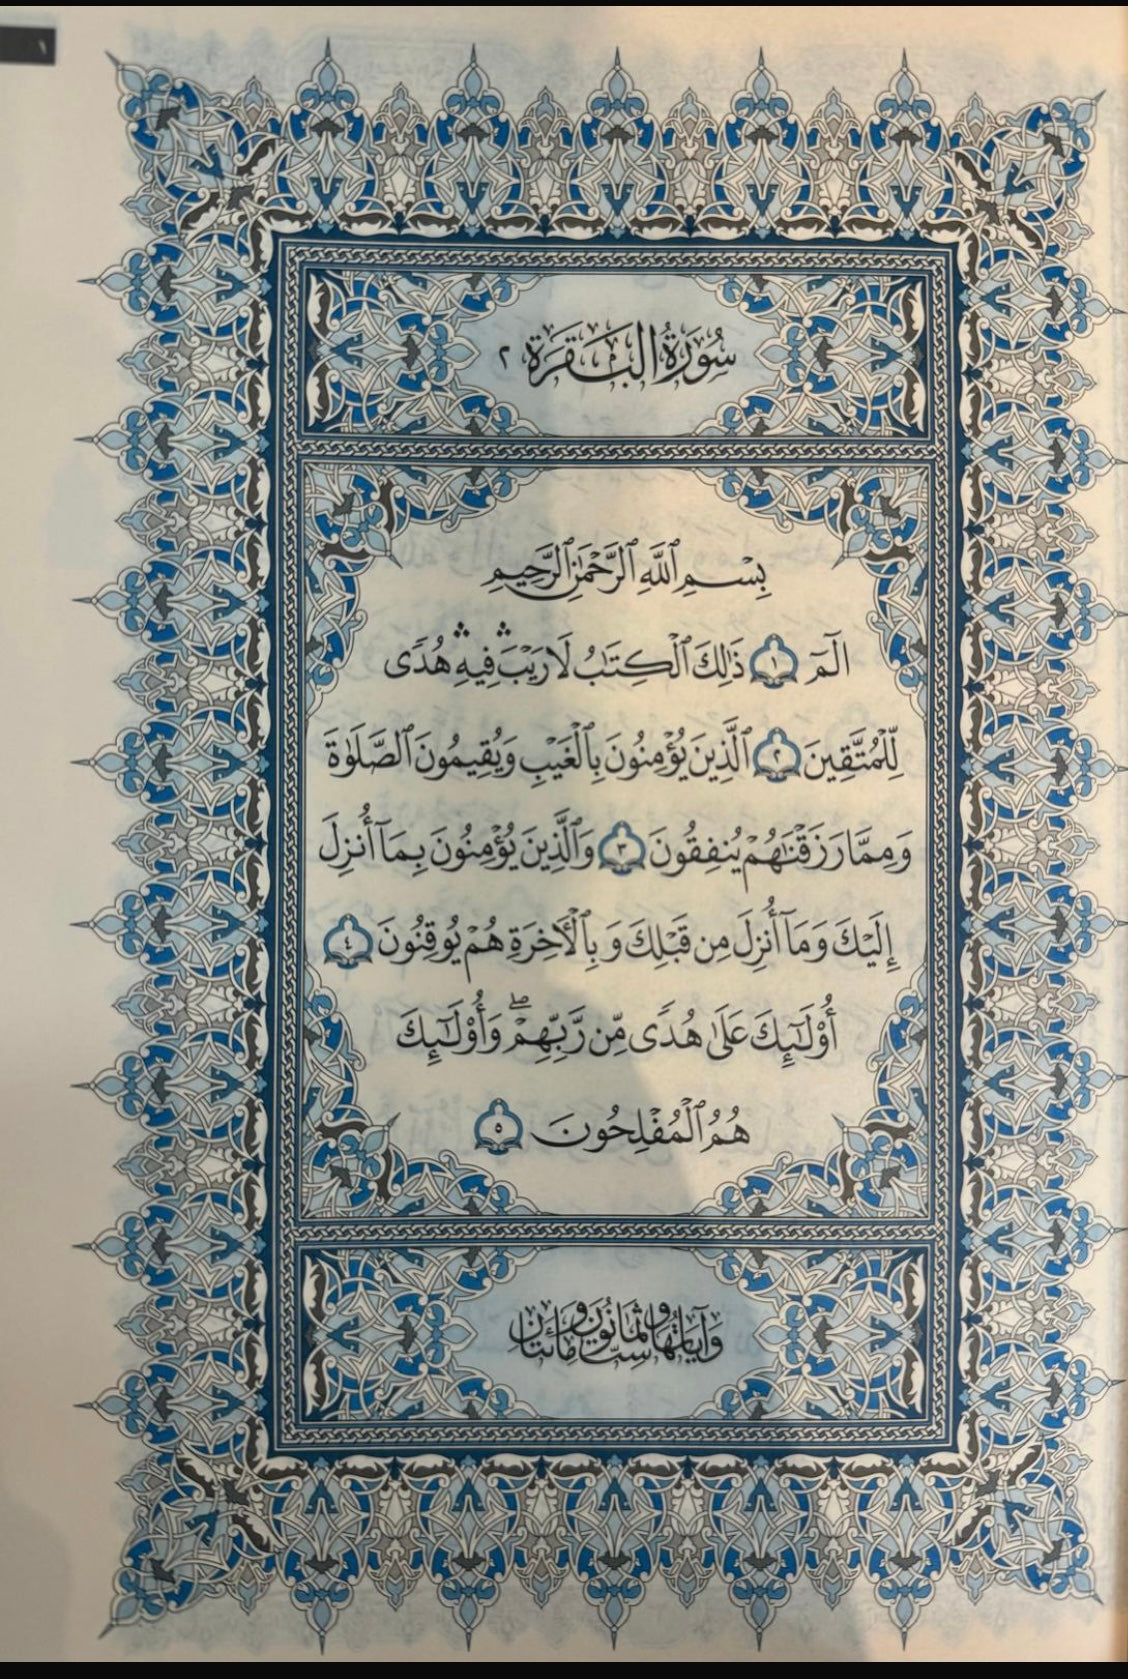 سُورَةُ البَقَرَة ٢
بِسْمِ ٱللَّهِ ٱلرَّحْمَٰنِ ٱلرَّحِيمِ
الٓمٓ ١ ذَٰلِكَ ٱلْكِتَٰبُ لَا رَيْبَ ۛ فِيهِ ۛ هُدًى
لِّلْمُتَّقِينَ ٢ ٱلَّذِينَ يُؤْمِنُونَ بِٱلْغَيْبِ وَيُقِيمُونَ ٱلصَّلَوٰةَ
وَمِمَّا رَزَقْنَٰهُمْ يُنفِقُونَ ٣ وَٱلَّذِينَ يُؤْمِنُونَ بِمَآ أُنزِلَ
إِلَيْكَ وَمَآ أُنزِلَ مِن قَبْلِكَ وَبِٱلْأَخِرَةِ هُمْ يُوقِنُونَ ٤
أُو۟لَٰٓئِكَ عَلَىٰ هُدًى مِّن رَّبِّهِمْ ۖ وَأُو۟لَٰٓئِكَ
هُمُ ٱلْمُفْلِحُونَ ٥
وَآيَاتُهَا سِتٌّ وَثَمَانُونَ وَمِائَتَانِ